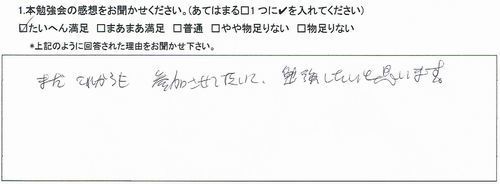 1.本勉強会の感想をお聞かせください。(あてはまる□1つに✔を入れてください)
☑たいへん満足 □まあまあ満足 □普通 □やや物足りない □物足りない
*上記のように回答された理由をお聞かせ下さい。
まだ これからも 参加させて頂いて、勉強したいと思います。